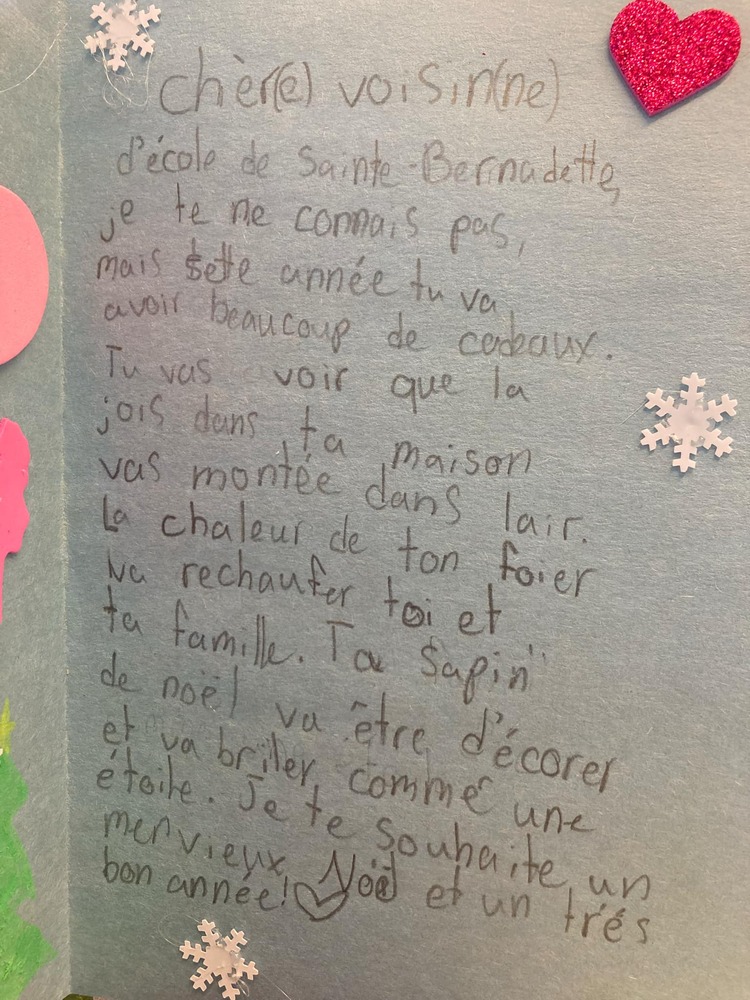 chèr(e) voisin(ne)
d'école de Sainte-Bernadette,
je te ne connais pas,
mais sette année tu va
avoir beaucoup de cadeaux.
Tu vas voir que la
jois dans ta maison
vas montée dans lair.
La chaleur de ton foier
va rechaufer toi et
ta famille. Ta sapin
de noël va être d'écorer
et va briller comme une
étoile. Je te souhaite un
mervieux Noël et un trés
bon année!